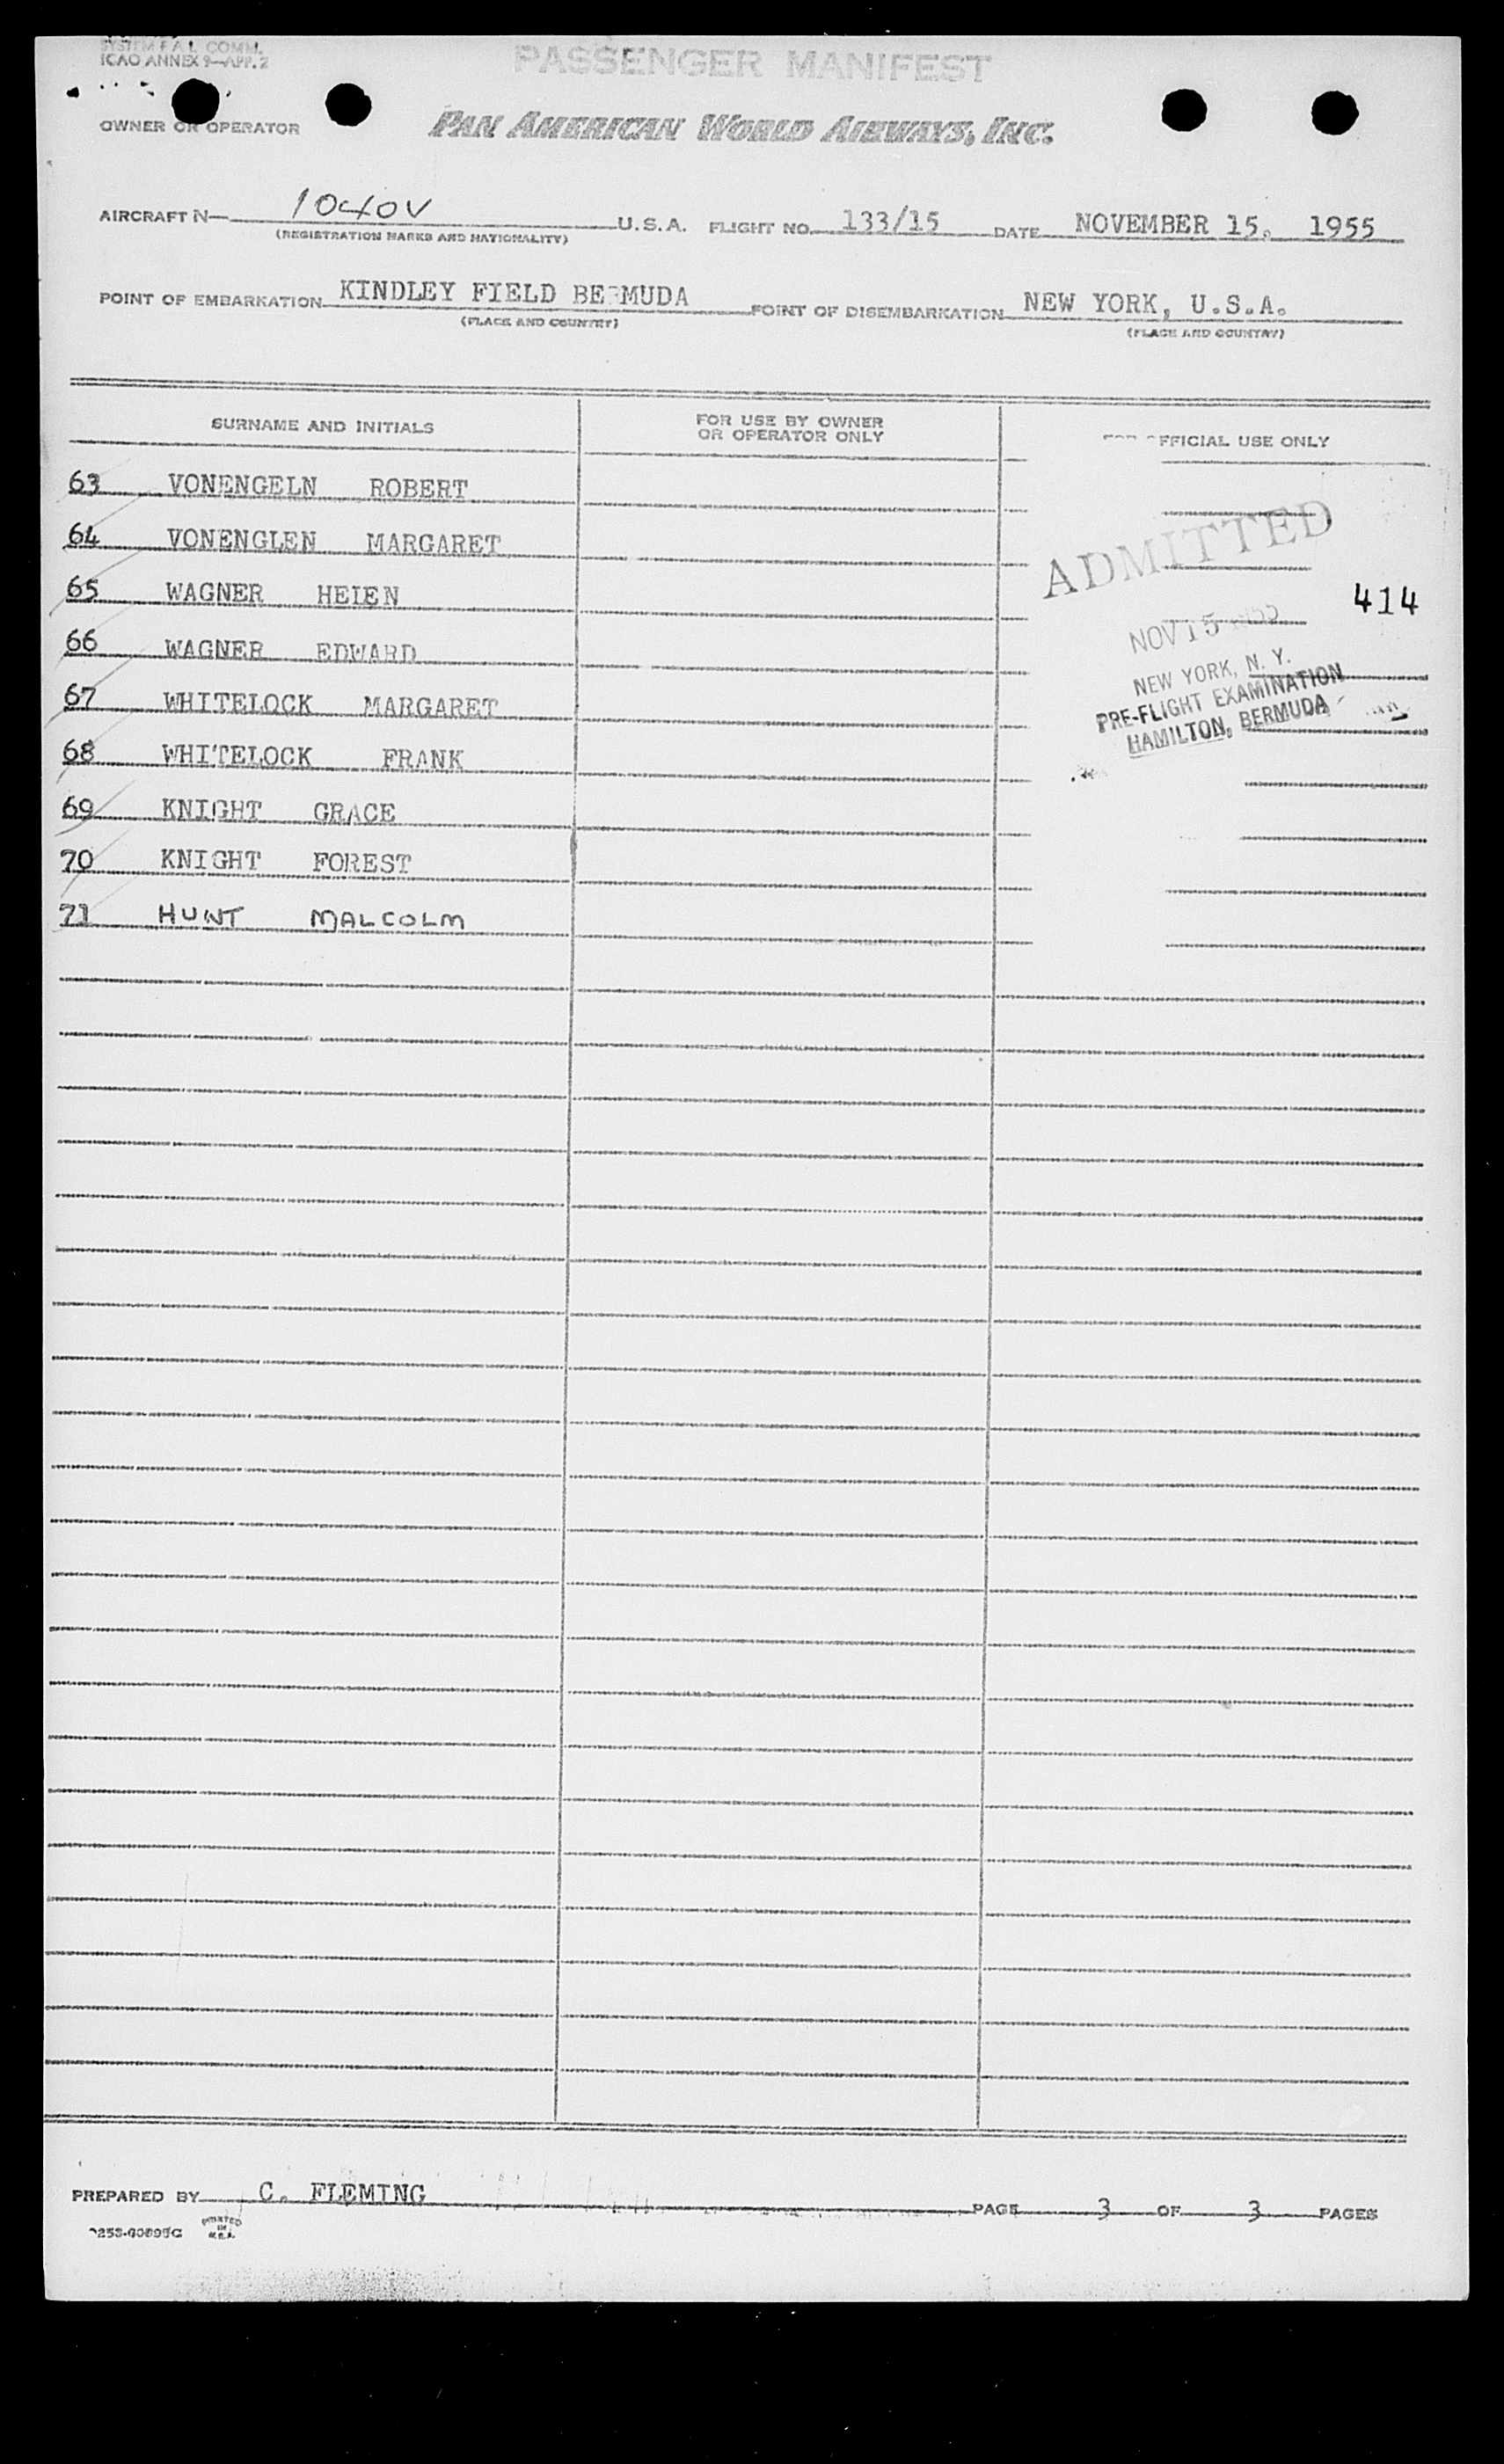 SYSTEM F A L COMM.
ICAO ANNEX 9—APP. 2
PASSENGER MANIFEST
OWNER OR OPERATOR PAN AMERICAN WORLD AIRWAYS, INC.
AIRCRAFT N— 1040V U.S.A. FLIGHT NO. 133/15 DATE NOVEMBER 15. 1955
(REGISTRATION MARKS AND NATIONALITY)
POINT OF EMBARKATION KINDLEY FIELD BERMUDA POINT OF DISEMBARKATION NEW YORK, U.S.A.
(PLACE AND COUNTRY) (PLACE AND COUNTRY)
SURNAME AND INITIALS FOR USE BY OWNER OR OPERATOR ONLY FOR OFFICIAL USE ONLY
63 VONENGELN ROBERT
64 VONENGLEN MARGARET
65 WAGNER HELEN
66 WAGNER EDWARD
67 WHITELOCK MARGARET
68 WHITELOCK FRANK
69 KNIGHT GRACE
70 KNIGHT FOREST
71 HUNT MALCOLM
ADMITTED
414
NOV 15 1955
NEW YORK, N. Y.
PRE-FLIGHT EXAMINATION
HAMILTON, BERMUDA
PREPARED BY C. FLEMING PAGE 3 OF 3 PAGES
PRINTED
IN
U.S.A.